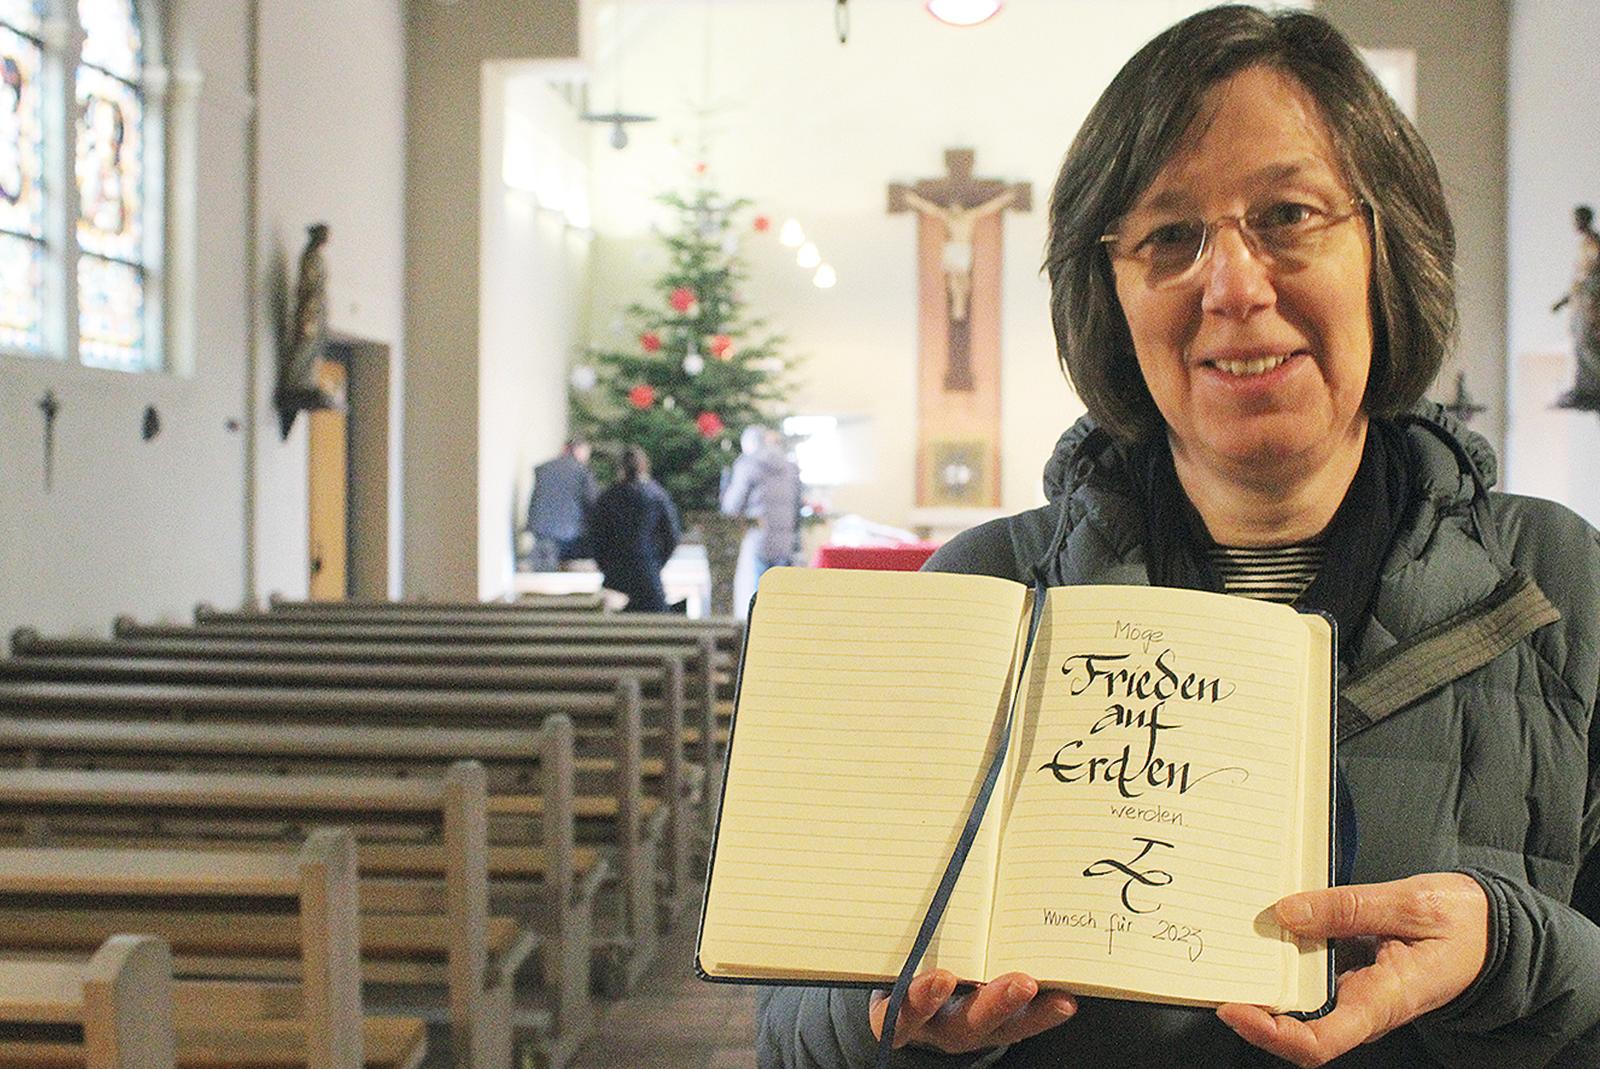 Möge
Frieden
auf
Erden
werden.
Wunsch für 2023